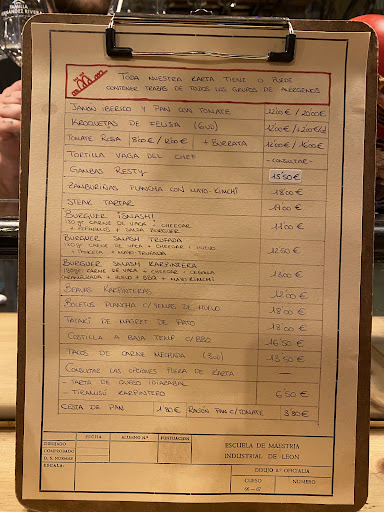 FAMILIA
FERNÁNDEZ RIVERA
TODA NUESTRA KARTA TIENE O PUEDE
CONTENER TRAZAS DE TODOS LOS GRUPOS DE ALERGENOS
JAMÓN IBERICO Y PAN CON TOMATE 12'00€ / 20'00€
KROQUETAS DE FELISA (6UD) 12'00€
TOMATE ROSA 8'00€ / 12'00€ + BURRATA 12'00€ / 16'00€
TORTILLA VAGA DEL CHEF -CONSULTAR-
GAMBAS RESTY 15'50€
ZAMBURIÑAS PLANCHA CON MAYO-KIMCHI 18'00€
STEAK TARTAR
BURGUER ¡SMASH!
130 gr CARNE DE VACA + CHEEGAR
+ PEPINILLO + SALSA BURGUER
BURGUER SMASH TRUFADA 12'50€
130 gr CARNE DE VACA + CHEEGAR + HUEVO
+ PANCETA + MAYO-TRUFADA
BURGUER SMASH KARPINTERA 13'00€
130gr CARNE DE VACA + CHEEGAR + CEBOLLA
+ HUEVO + BBQ + MAYO-KIMCHI
BRAVAS KARPINTERAS 12'00€
BOLETUS PLANCHA C/YEMAS DE HUEVO 18'00€
TATAKI DE MAGRET DE PATO 18'00€
COSTILLA A BAJA TEMPª C/BBQ 16'50€
TACOS DE CARNE MECHADA (3UD) 13'50€
CONSULTAR LAS OPCIONES FUERA DE KARTA —
- TARTA DE QUESO IDIAZABAL
- TIRAMISÚ KARPINTERO 6'50€
CESTA DE PAN 1'80€ RACIÓN PAN C/TOMATE 3'80€
FECHA ALUMNO N.º PUNTUACIÓN
DIBUJADO
COMPROBADO
D. S. NORMAS
ESCALA:
ESCUELA DE MAESTRIA
INDUSTRIAL DE LEON
DIBUJO 2.º OFICIALIA
CURSO
66 - 67
NUMERO